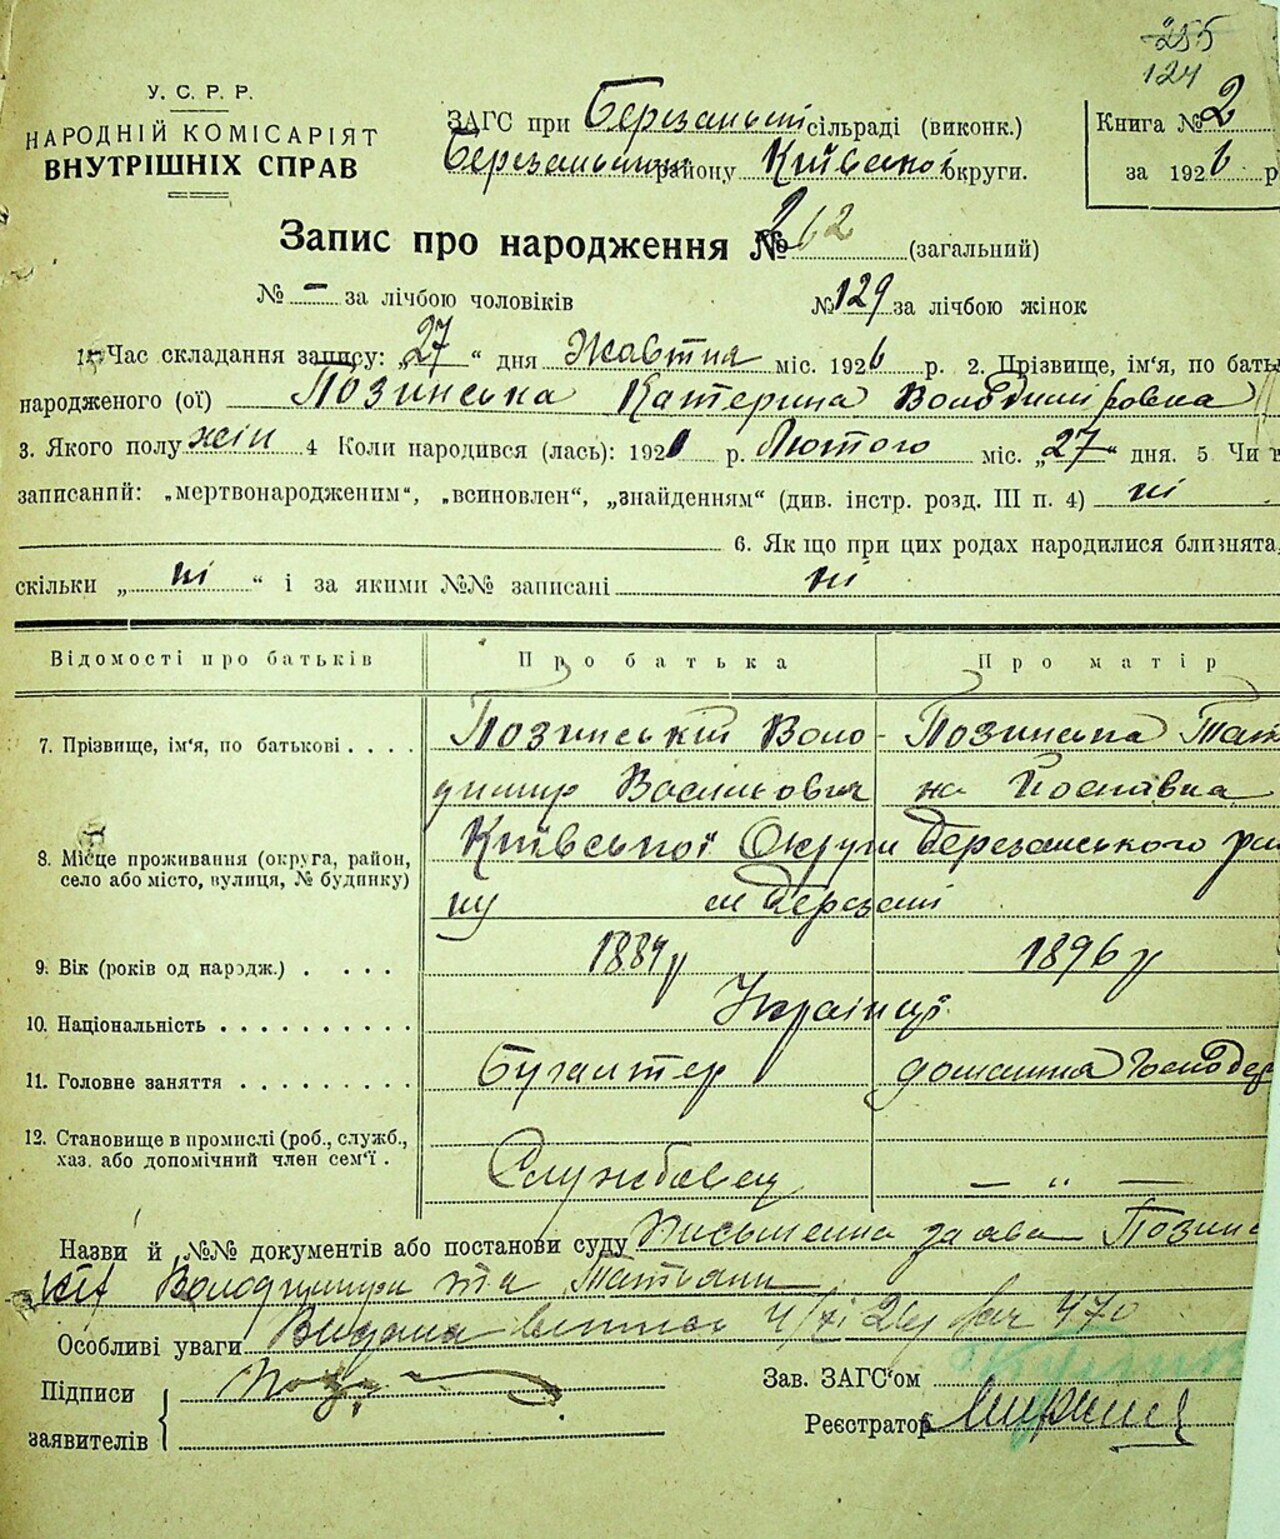 255
124
У. С. Р. Р.
НАРОДНІЙ КОМІСАРІЯТ
ВНУТРІШНІХ СПРАВ
ЗАГС при Березанській сільраді (виконк.)
Березанського району Київської округи.
Книга № 2
за 1926 р
Запис про народження № 262 (загальний)
№ – за лічбою чоловіків № 129 за лічбою жінок
1. Час складання запису: „27“ дня Жовтня міс. 1926 р. 2. Прізвище, ім'я, по бать
народженого (ої) Позинська Катерина Володимировна
3. Якого полу жін 4 Коли народився (лась): 192 р. Лютого міс. „27“ дня. 5 Чи
записаний: „мертвонародженим“, „всиновлен“, „знайденням“ (див. інстр. розд. III п. 4) ні
6. Якщо при цих родах народилися близнята,
скільки „ні“ і за якими №№ записані ні
Відомості про батьків Про батька Про матір
7. Прізвище, ім'я, по батькові . . . . Позинський Воло- Позинська Тат
димир Васильович на Йосиповна
8. Місце проживання (округа, район, Київської Округи Березанського рай
село або місто, вулиця, № будинку) ну м Березані
9. Вік (років од народж.) . . . . 1884 р 1896 р
10. Національність . . . . . . . . . . Українці
11. Головне заняття . . . . . . . . . Бугалтер домашня господар
12. Становище в промислі (роб., служб.,
хаз. або допомічний член сем'ї . Службовец — „ —
Назви й №№ документів або постанови суду Письменна заява Позинс
ких Володимира та Татьяни
Особливі уваги Видана 4/XI 26 р 470
Підписи Поз
заявителів
Зав. ЗАГС'ом
Реєстратор